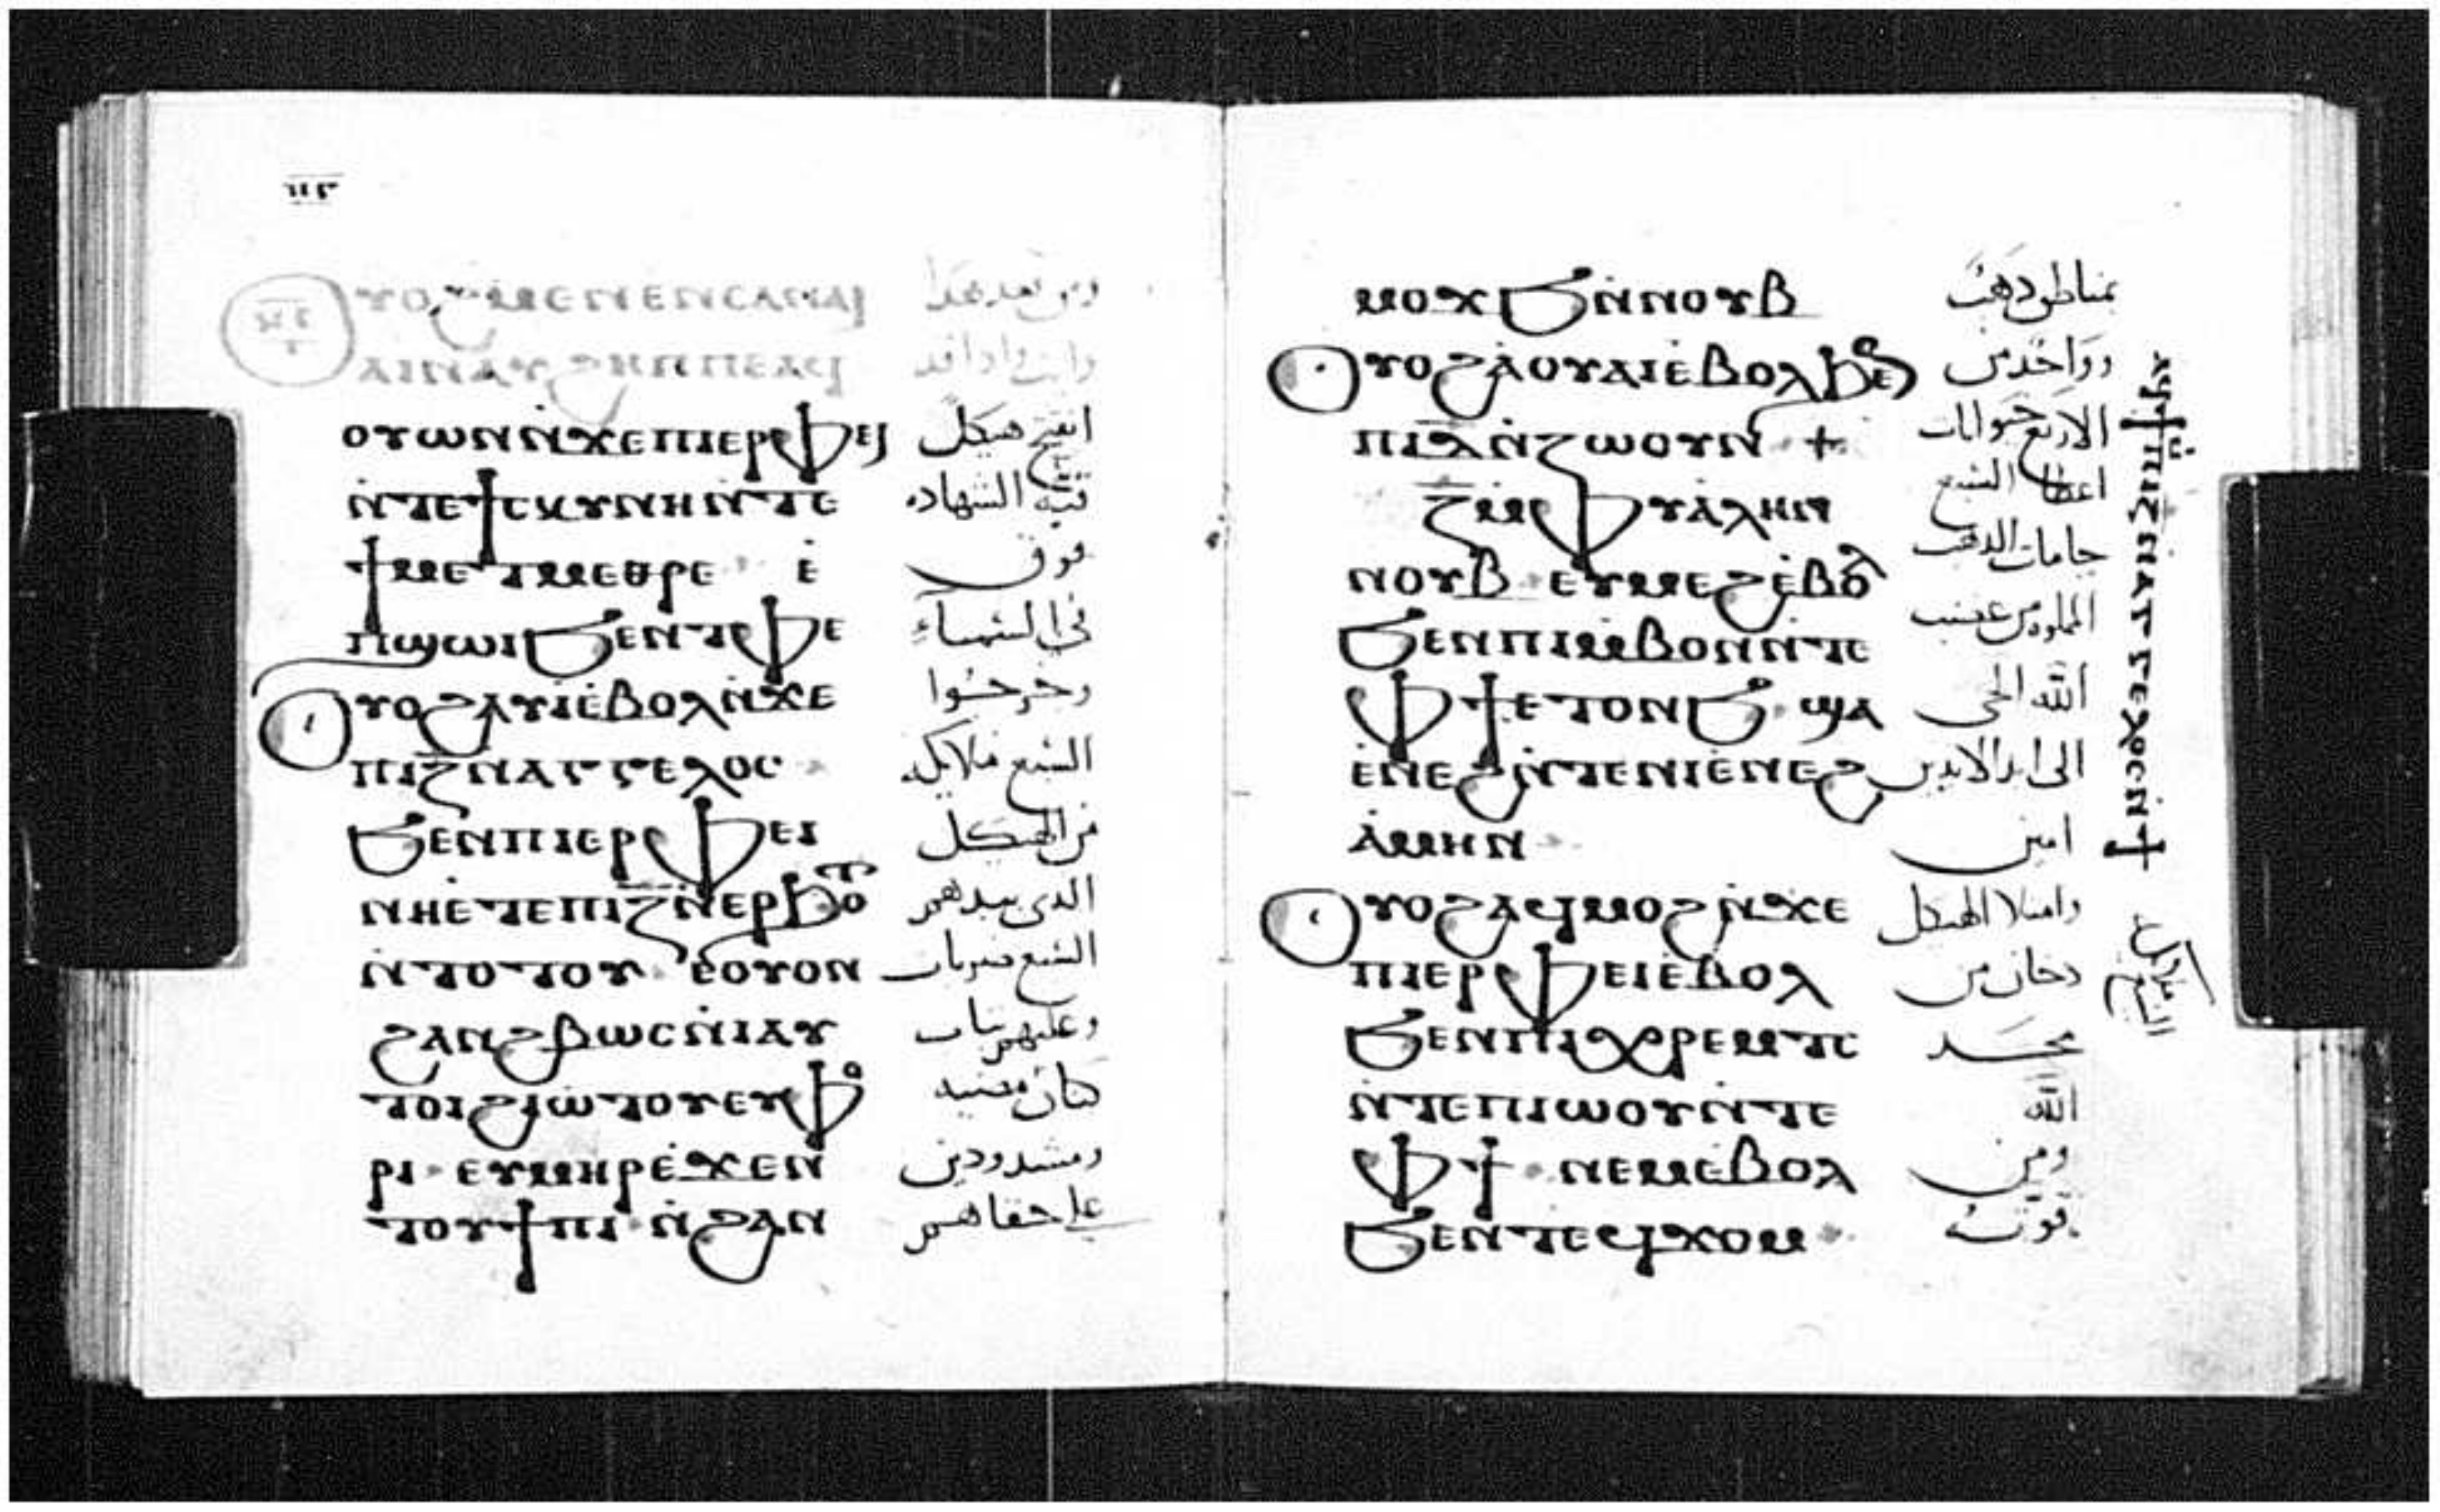 ⲟⲩⲟϩ ⲙⲉⲛⲉⲛⲥⲁⲛⲁⲓ
ⲁⲓⲛⲁⲩ ϩⲏⲡⲡⲉ ⲁϥ
ⲟⲩⲱⲛ ⲛ̇ϫⲉ ⲡⲓⲉⲣⲫⲉⲓ انفتح هيكل
ⲛ̇ⲧⲉ ϯⲥⲕⲩⲛⲏ ⲛ̇ⲧⲉ قبة الشهاده
ϯⲙⲉⲧⲙⲉⲑⲣⲉ ⲉ̇ فوق
ⲡϣⲱⲓ ϧⲉⲛ ⲧⲫⲉ في السماء
ⲟⲩⲟϩ ⲁⲩⲓ ⲉ̇ⲃⲟⲗ ⲛ̇ϫⲉ وخرجوا
ⲡⲓⲍ̅ ⲛⲁⲅⲅⲉⲗⲟⲥ السبع ملايكه
ϧⲉⲛ ⲡⲓⲉⲣⲫⲉⲓ من الهيكل
ⲛⲏ ⲉ̇ⲧⲉ ⲡⲓⲍ̅ ⲛ̇ⲉⲣϧⲟⲧ الدي بيدهم
ⲛ̇ⲧⲟⲧⲟⲩ ⲉⲟⲩⲟⲛ السبع ضربات
ϩⲁⲛϩⲃⲱⲥ ⲛ̇ⲓⲁⲩ وعليهم تياب
ⲧⲟⲓ ϩⲓⲱⲧⲟⲩ ⲉⲩⲫⲟ كتان مضيه
ⲣⲓ ⲉⲩⲙⲏⲣ ⲉ̇ϫⲉⲛ ومشدودين
ⲧⲟⲩϯⲡⲓ ⲛ̇ϩⲁⲛ علي حقاهم
ⲙⲟϫϧ ⲛ̇ⲛⲟⲩⲃ بمناطق دهب
ⲟⲩⲟϩ ⲁ̇ⲟⲩⲁⲓ ⲉ̇ⲃⲟⲗ ϧⲉⲛ وواحد من
ⲡⲓⲇ̅ ⲛ̇ⲍⲱⲟⲩⲛ الاربع حيوانات
ⲍ̅ ⲙⲫⲩⲁ̇ⲗⲏ ⲛ اعطا السبع
ⲛⲟⲩⲃ ⲉⲩⲙⲉϩ ⲉ̇ⲃⲟⲗ جامات الدهب
ϧⲉⲛ ⲡⲓⲙⲃⲟⲛ ⲛ̇ⲧⲉ المملوه من غضب
ⲫϯ ⲉⲧⲟⲛϧ ϣⲁ الله الحي
ⲉ̇ⲛⲉϩ ⲛ̇ⲧⲉ ⲛⲓⲉ̇ⲛⲉϩ الى ابد الابدين
ⲁ̇ⲙⲏⲛ امين
ⲟⲩⲟϩ ⲁϥⲙⲟϩ ⲛ̇ϫⲉ وامتلا الهيكل
ⲡⲓⲉⲣⲫⲉⲓ ⲉ̇ⲃⲟⲗ دخان من
ϧⲉⲛ ⲡⲓⲭⲣⲉⲙⲧⲥ مجد
ⲛ̇ⲧⲉ ⲡⲓⲱⲟⲩ ⲛ̇ⲧⲉ الله
ⲫϯ ⲛⲉⲙ ⲉ̇ⲃⲟⲗ ومن
ϧⲉⲛ ⲧⲉϥϫⲟⲙ قوته